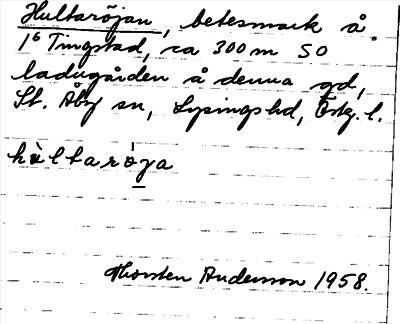 Hultaröjan, betesmark å
1⁶ Tingstad, ca 300 m SO
ladugården å denna gd,
St. Åby sn, Lysings hd, Östg. l.
hùltarö̀ya
Thorsten Andersson 1958.